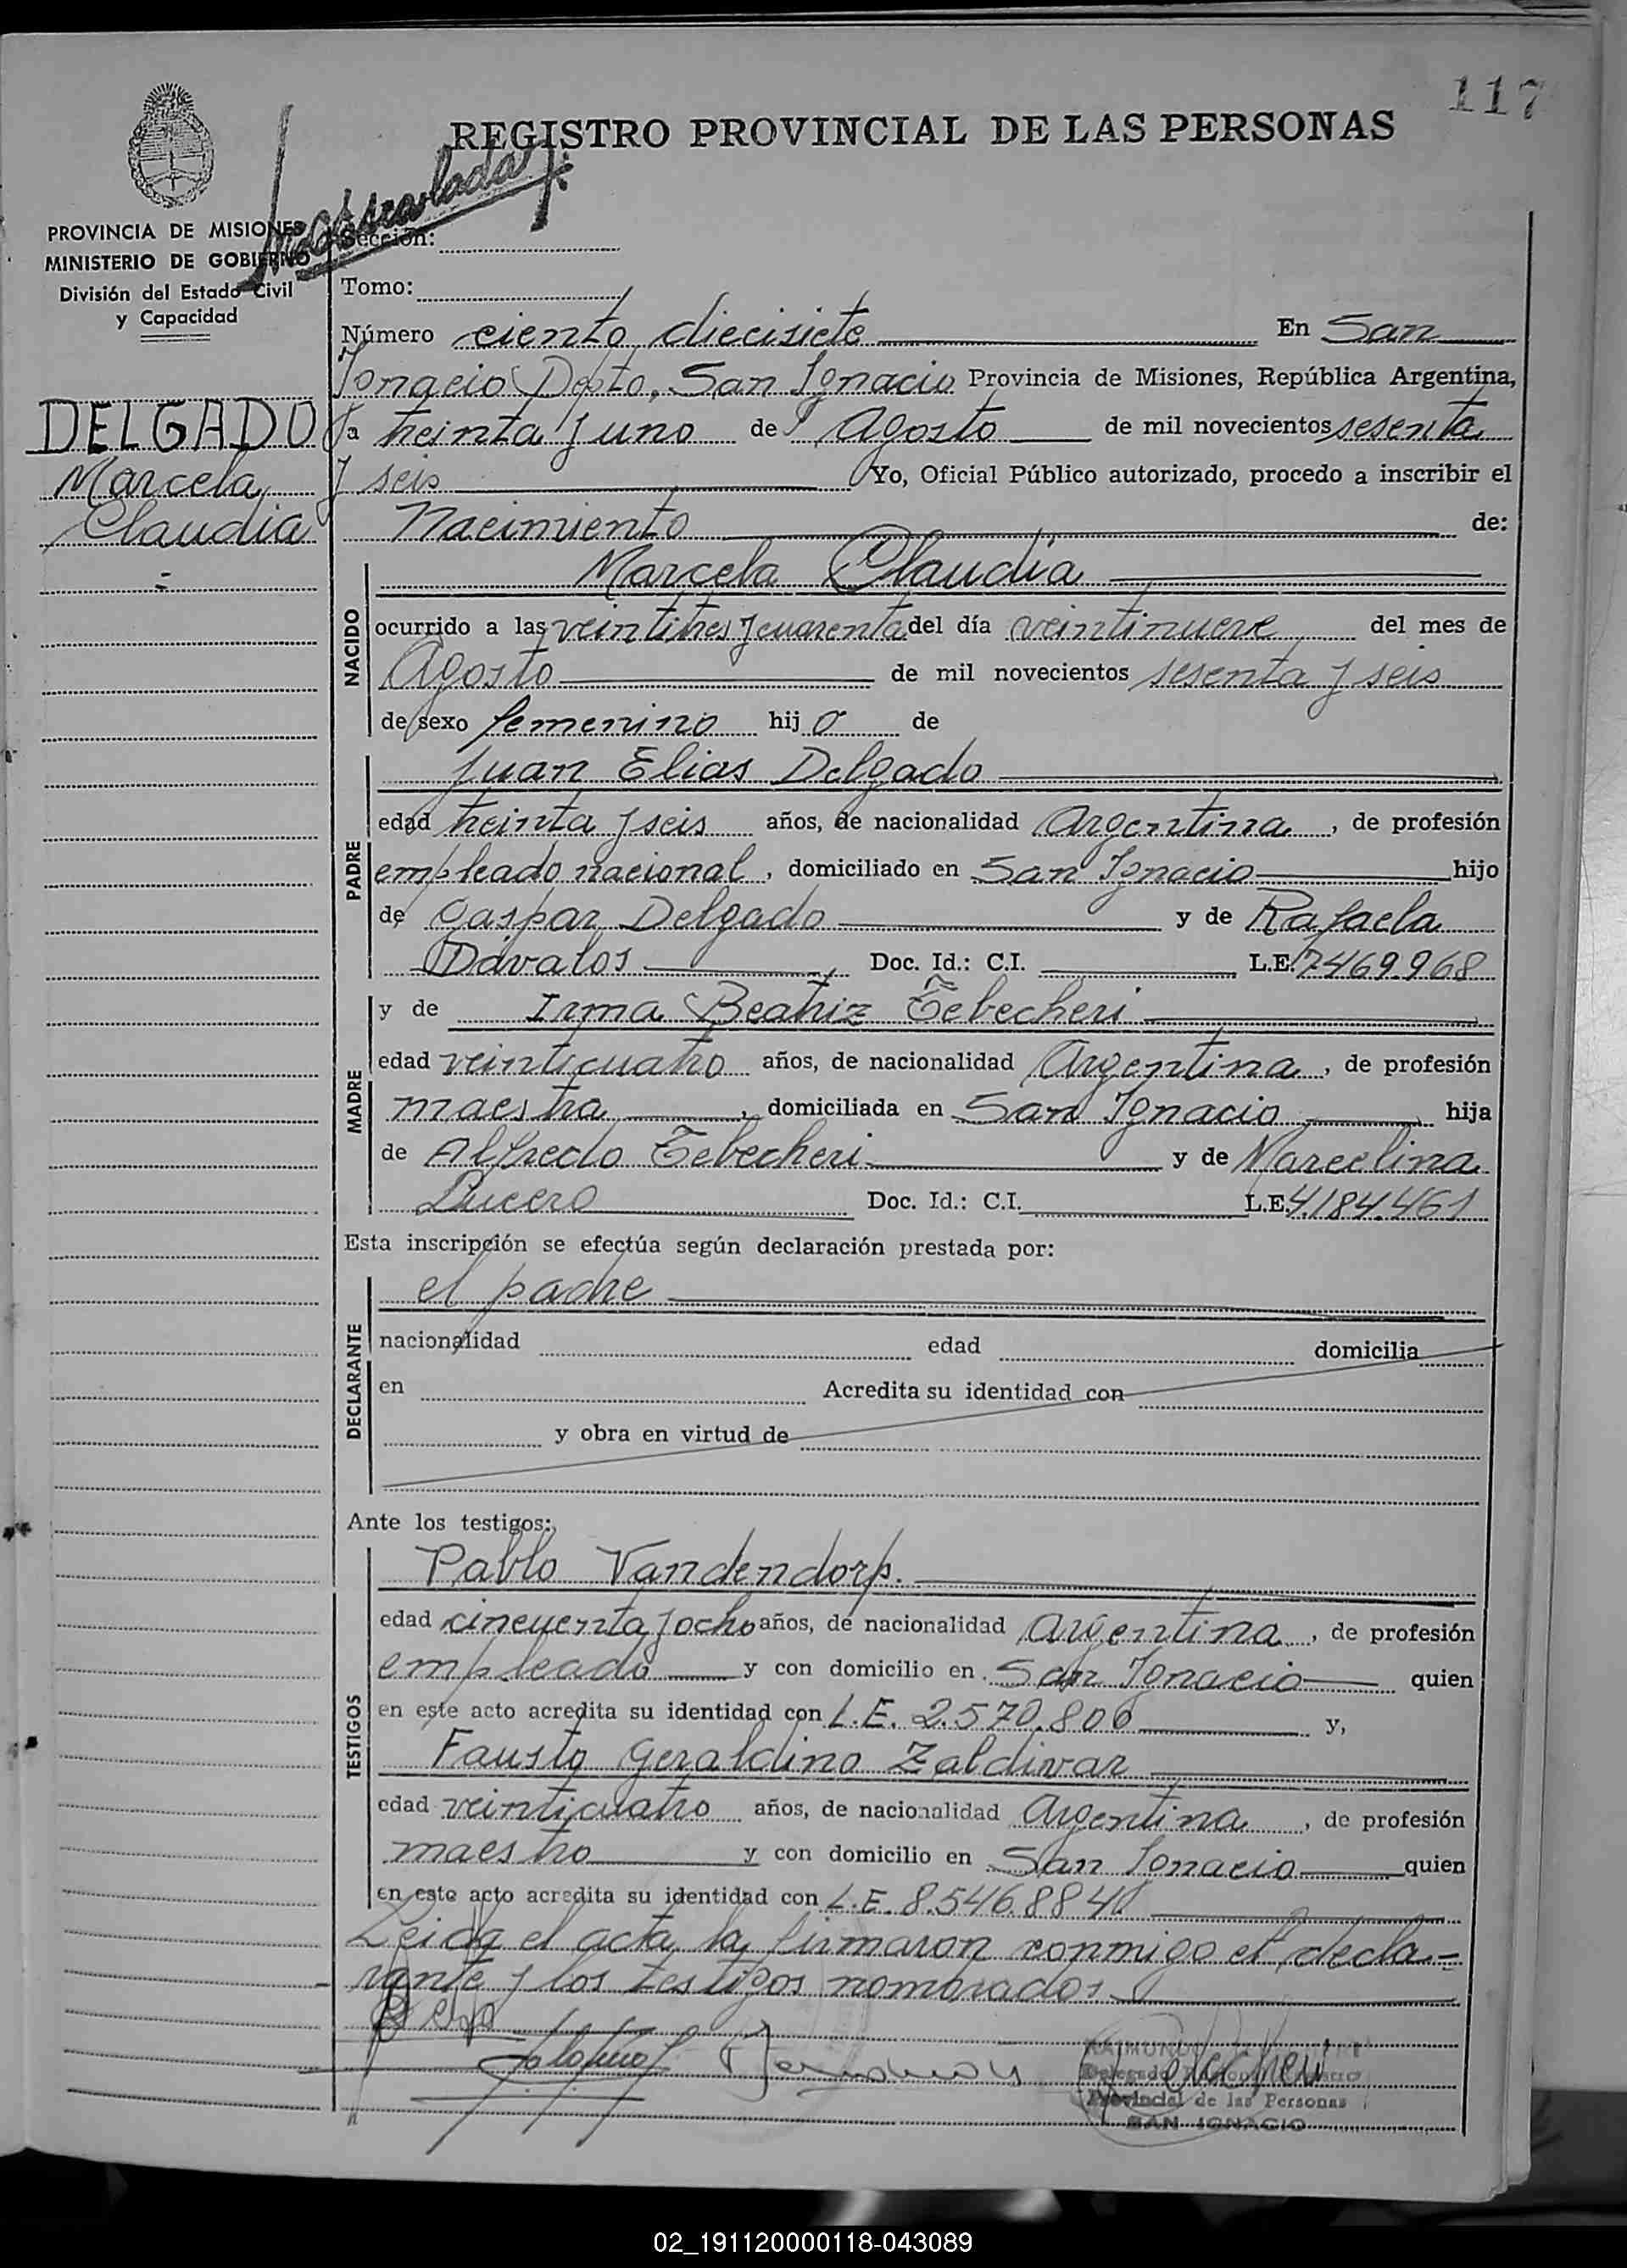 117
REGISTRO PROVINCIAL DE LAS PERSONAS
PROVINCIA DE MISIONES
MINISTERIO DE GOBIERNO
División del Estado Civil
y Capacidad
DELGADO
Marcela
Claudia
Sección:
Tomo:
Número ciento diecisiete En San
Ignacio Dpto. San Ignacio Provincia de Misiones, República Argentina,
a treinta y uno de Agosto de mil novecientos sesenta
y seis Yo, Oficial Público autorizado, procedo a inscribir el
Nacimiento de:
NACIDO
Marcela Claudia
ocurrido a las veintitres y cuarenta del día veintinueve del mes de
Agosto de mil novecientos sesenta y seis
de sexo femenino hij a de
PADRE
Juan Elias Delgado
edad treinta y seis años, de nacionalidad Argentina, de profesión
empleado nacional, domiciliado en San Ignacio hijo
de Gaspar Delgado y de Rafaela
Dávalos Doc. Id.: C.I. L.E. 7469.968
MADRE
y de Irma Beatriz Tebecheri
edad veinticuatro años, de nacionalidad Argentina, de profesión
maestra, domiciliada en San Ignacio hija
de Alfredo Tebecheri y de Marcelina
Lucero Doc. Id.: C.I. L.E. 4.184.461
Esta inscripción se efectúa según declaración prestada por:
DECLARANTE
el padre
nacionalidad edad domicilia
en Acredita su identidad con
y obra en virtud de
Ante los testigos:
TESTIGOS
Pablo Vandendorp.
edad cincuenta y ocho años, de nacionalidad Argentina, de profesión
empleado y con domicilio en San Ignacio quien
en este acto acredita su identidad con L.E. 2.570.806 y,
Fausto Geraldino Zaldivar
edad veinticuatro años, de nacionalidad Argentina, de profesión
maestro y con domicilio en San Ignacio quien
en este acto acredita su identidad con L.E. 8.546.884
Leida el acta, la firmaron conmigo el decla=
rante y los testigos nombrados
Provincial de las Personas
SAN IGNACIO
02_191120000118-043089